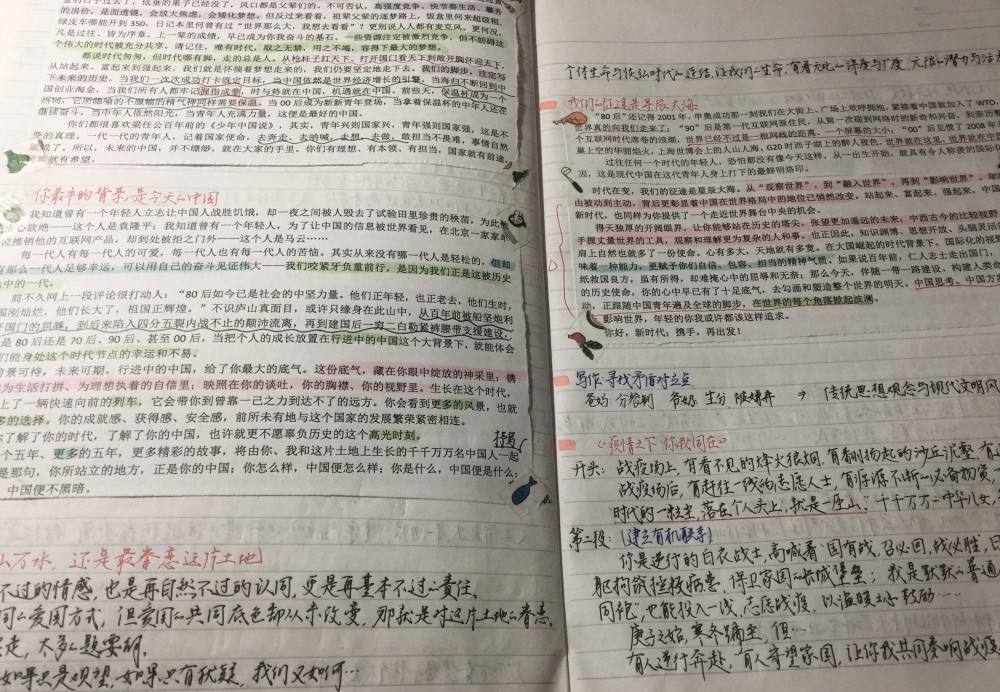 绿皮车哪能开到350，日记本里何曾有过“世界那么大，我想去看看”？更别说人人都有麦克风。更何况，
凡是过往、皆为序章。上一辈的成绩，早已成为你我奋斗的基石。一些资源注定被激烈竞争，但不妨碍这
个伟大的时代被充分共享。请记住，唯有时代，取之无禁，用之不竭，容得下最大的梦想。
都说时代匆匆，但时代哪有脚，走的总是人。从枪杆子打天下、打开国门看天下到敞开胸怀迎天下，
从站起来、富起来到强起来，我们就是怀揣着梦想走来的，我们仍要坚定地走下去。我们的脚步，注定写
下未来的历史。当我们一次次成功打卡既定目标，当中国依然是世界经济增长的引擎，当海归不断回到中
国创业淘金，当我们所有人都牢记握指成拳，时与势就在中国，机遇就在中国。前些天，保温杯成为一个
继续奋斗，当中年人依然阳光，当青年人充满力量，这便是最好的中国。
你们都很喜欢梁任公百年前的《少年中国说》，其实，青年兴则国家兴，青年强则国家强，这是不
变的真理。一代一代的青年人，记着国家使命，去奔走、去呐喊、去想、去做，敢担当不畏难，事情自然
成了。所以，未来的中国，并不缥缈，就在大家的手里。你们有理想、有本领、有担当，国家就有前途，
就有希望。
你最牛的背景，是今天的中国
我知道曾有一个年轻人立志让中国人战胜饥饿，却一夜之间被人毁去了试验田里珍贵的秧苗，为此
心欲绝——这个人是袁隆平；我知道曾有一个年轻人，为了让中国的信息被世界看见，在北京一家家单
位推销他的互联网产品，却到处被拒之门外——这个人是马云……
每一代人有每一代人的可爱，每一代人也有每一代人的苦恼。其实从来没有哪一代人是轻松的，但却
有那么一代人足够幸运，可以用自己的奋斗见证伟大——我们咬紧牙负重前行，是因为我们正是这被历史
中的一代。
前不久网上一段评论很打动人：“80后如今已是社会的中坚力量。他们正年轻，也正老去，他们生时，
国刚灿烂，他们长大了，祖国正辉煌。”不识庐山真面目，或许只缘身在此山中，从百年前被船坚炮利
开国门的屈辱，到后来陷入四分五裂内战不止的颠沛流离，再到建国后一穷二白勒紧裤腰带支援建设，
是80后还是70后、90后，甚至00后，当把个人的成长放置在行进中的中国这个大背景下，就能体会
们能身处这个时代节点的幸运和不易。
景可待，未来可期。行进中的中国，给了你最大的底气。这份底气，藏在你眼中绽放的神采里；镌
为生活打拼、为理想执着的自信里；映照在你的谈吐，你的胸襟、你的视野里。生长在这个时代，
上了一辆快速向前的列车，它会带你到曾靠一己之力到达不了的远方。你会看到更多的风景，也就
多的选择。你的成就感、获得感、安全感，前所未有地与这个国家的发展繁荣紧密相连。
了解了你的时代，了解了你的中国，也许就更不愿辜负历史的这个高光时刻。
个五年、更多的五年，更多精彩的故事，将由你、我和这片土地上生长的千千万万名中国人一起
是那句，你所站立的地方，正是你的中国；你怎么样，中国便怎么样；你是什么，中国便是什么；
中国便不黑暗。
万水，还是最眷恋这片土地
不过的情感，也是再自然不过的认同，更是再基本不过的责任。
同的爱国方式，但爱国的共同底色却从未改变，那就是对这片土地的眷恋。
走，太多的题要解，
如果只是观望，如果只有犹疑，我们又如何…
我们的征途是星辰大海
“80后”还记得2001年，申奥成功那一刻我们在大街上、广场上欢呼拥抱，紧接着中国就加入了WTO，
世界真的向我们走来了；“90”后是第一代互联网原住民，从第一次碰到网络时的新奇和兴奋，到亲历着
个互联网时代席卷的浪潮，世界已经不过是一根网线的距离、一个屏幕的大小；“00”后见惯了2008年鸟
巢上空的华丽焰火，上海世博会上的人山人海，G20时西子湖上的醉人夜色，世界就在这里，世界就在你
过往任何一个时代的年轻人，恐怕都没有像今天这样，从一出生开始，就具有令人称羡的国际化
因，这是现代中国在这代青年人身上打下的最鲜明烙印。
时代在变，我们的征途是星辰大海。从“观察世界”，到“融入世界”，再到“影响世界”，年
由被动到主动，背后更彰显着中国在世界格局中的地位已悄然改变。站起来，富起来，强起来，中国
新时代，也同样为你提供了一个走近世界舞台中央的机会。
得天独厚的开阔眼界，让你能够站在历史的塔尖，张望更加遥远的未来；中西古今的比较视野
手握丈量世界的工具，观察和理解更为复杂的人和事。也正因此，知识渊博、思想开放、头脑灵活
肩上自然也就多了一份使命。心有多大，天地就有多宽。在大国崛起的时代背景下，国际化的视
味着一种能力，更赋予你们自信、包容、担当的精神气质。如果说百年前，仁人志士走出国门，
纸救国良方，虽有所得，却难掩心中的屈辱和无奈；那么今天，伴随一带一路建设、构建人类命
的历史使命，你的心中早已有了十足底气，去勾画和塑造整个世界的明天。中国思考、中国方
动，正跟随中国青年遍及全球的脚步，在世界的每个角落掀起波澜。
影响世界，年轻的你我或许都该这样追求。
你好，新时代；携手，再出发！
写作：寻找矛盾对立点
传统思想观念与现代文明风
《疫情之下 你我同在》
开头：战疫场上，有看不见的烽火狼烟，有
战疫场后，有赶往一线的志愿人士，有源源不断的必备物资，
时代的一粒尘，落在个人头上，就是一座山。千千万万的中华儿女，
第二段：（建立有机联系）
你是逆行的白衣战士，高喊着“国有战，召必回，战必胜，
保卫家国的长城堡垒；我是默默的普通
同袍，也能投入一线，志愿战疫，以温暖
庚子之始，寒冬骤至，但…
有人逆行奔赴，有人守望家国，让你我共同奏响战疫